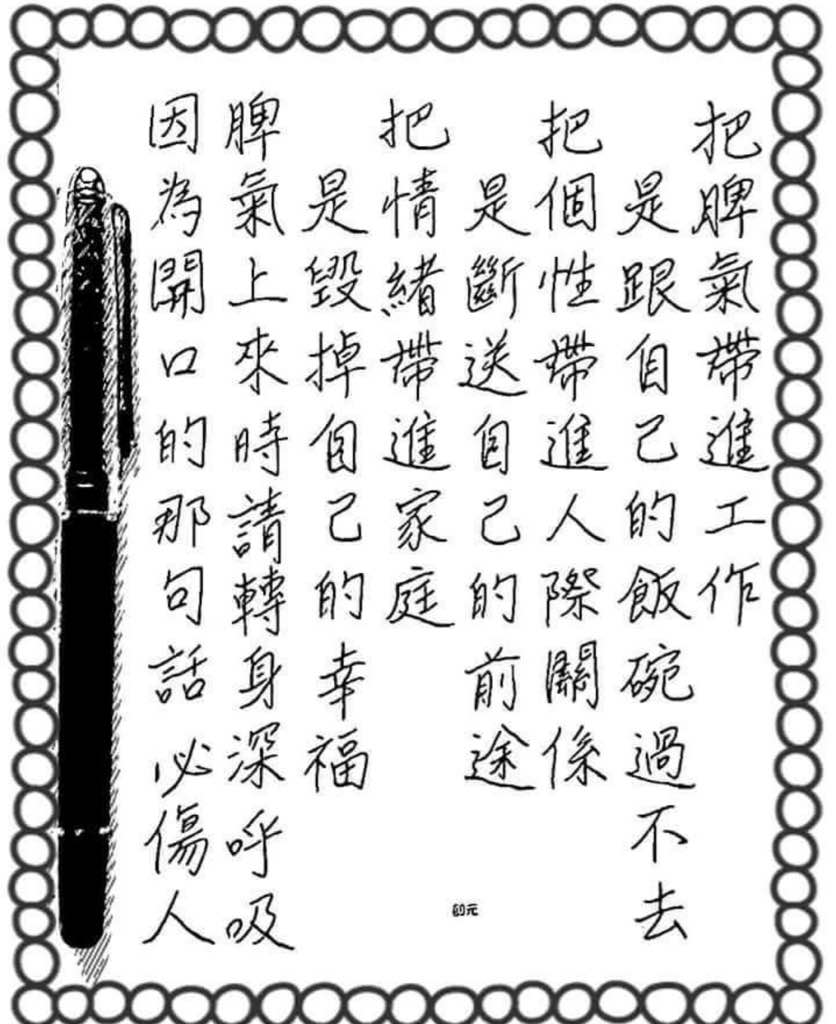 把脾氣帶進工作
是跟自己的飯碗過不去
把個性帶進人際關係
是斷送自己的前途
把情緒帶進家庭
是毀掉自己的幸福
脾氣上來時請轉身深呼吸
因為開口的那句話必傷人